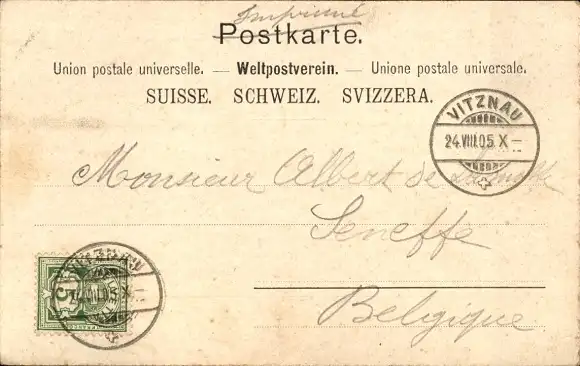 Imprimé
Postkarte.
Union postale universelle. — Weltpostverein. — Unione postale universale.
SUISSE. SCHWEIZ. SVIZZERA.
VITZNAU
24.VIII.05.X
Monsieur Albert de
Seneffe
Belgique
VITZNAU
5